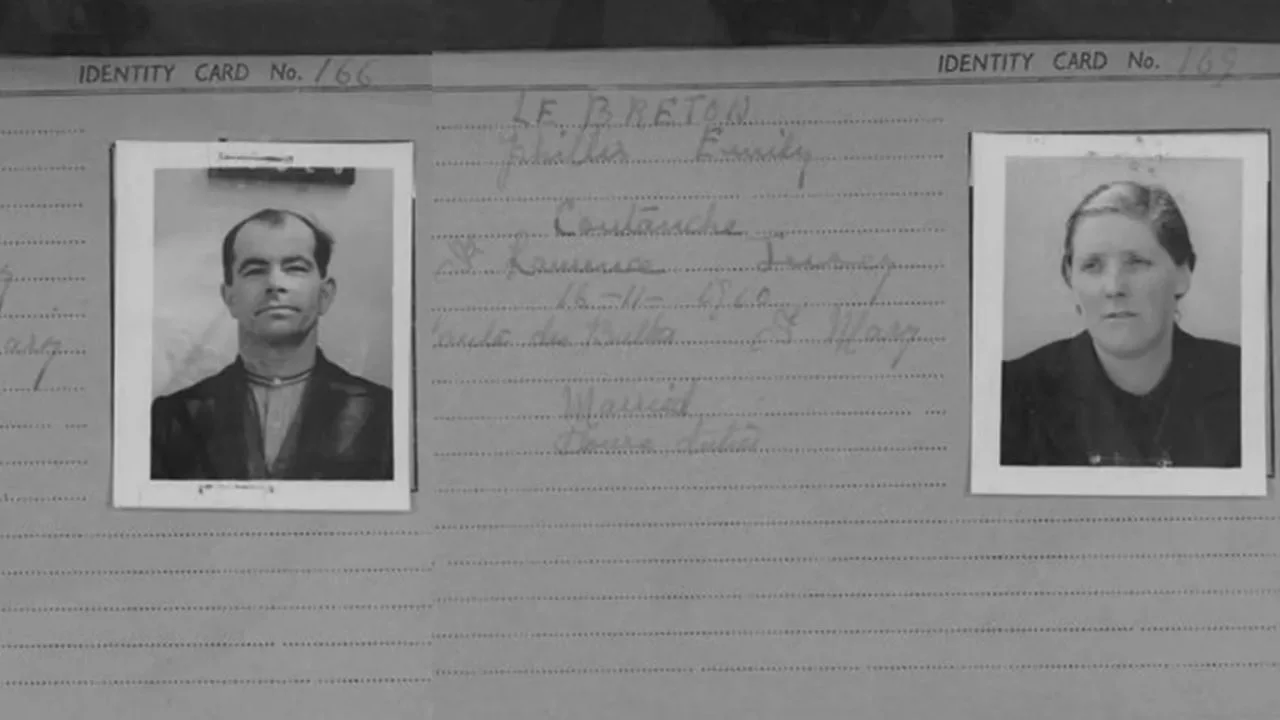 IDENTITY CARD No. 166
IDENTITY CARD No. 169
LE BRETON
Emily
Coutanche
St Lawrence Jersey
16-11-
St Mary
Married
House duties